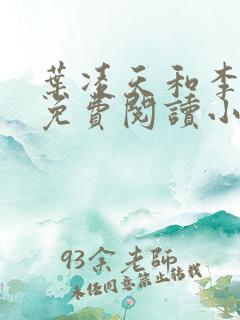 葉凌天和李
免費閱讀小
93余老師
未經同意禁止轉載